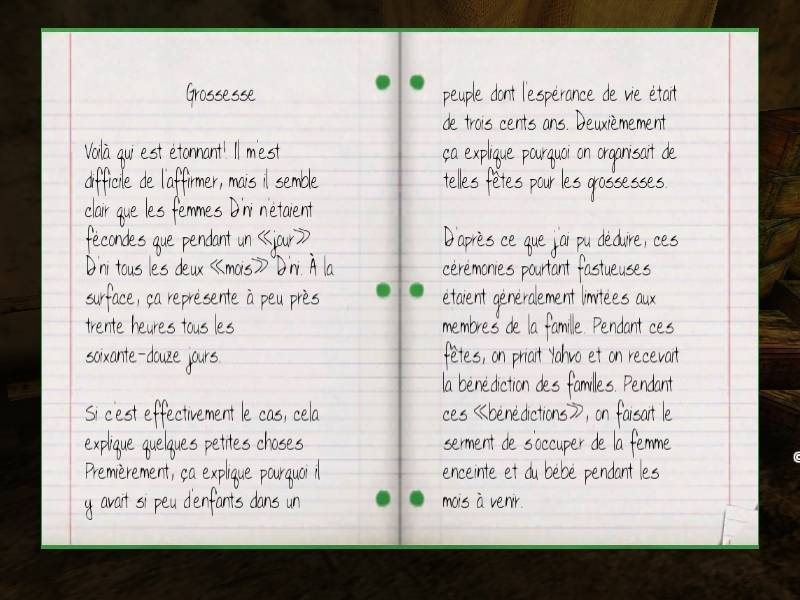 Grossesse
Voilà qui est étonnant! Il m'est
difficile de l'affirmer, mais il semble
clair que les femmes D'ni n'étaient
fécondes que pendant un «jour»
D'ni tous les deux «mois» D'ni. À la
surface, ça représente à peu près
trente heures tous les
soixante-douze jours.
Si c'est effectivement le cas, cela
explique quelques petites choses
Premièrement, ça explique pourquoi il
y avait si peu d'enfants dans un
peuple dont l'espérance de vie était
de trois cents ans. Deuxièmement
ça explique pourquoi on organisait de
telles fêtes pour les grossesses.
D'après ce que j'ai pu déduire, ces
cérémonies pourtant fastueuses
étaient généralement limitées aux
membres de la famille. Pendant ces
fêtes, on priait Yahvo et on recevait
la bénédiction des familles. Pendant
ces «bénédictions», on faisait le
serment de s'occuper de la femme
enceinte et du bébé pendant les
mois à venir.
©